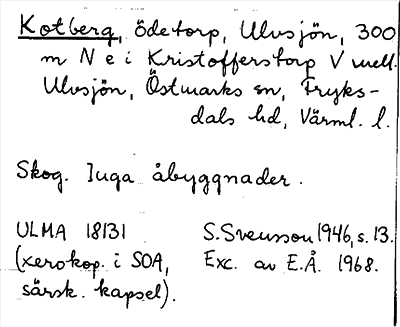 Kotberg, ödetorp, Ulvsjön, 300
m N e i Kristofferstorp V mell.
Ulvsjön, Östmarks sn, Fryks-
dals hd, Värml. l.
Skog. Inga åbyggnader.
ULMA 18131
(xerokop. i SOA,
särsk. kapsel).
S. Svensson 1946, s. 13.
Exc. av E.Å. 1968.